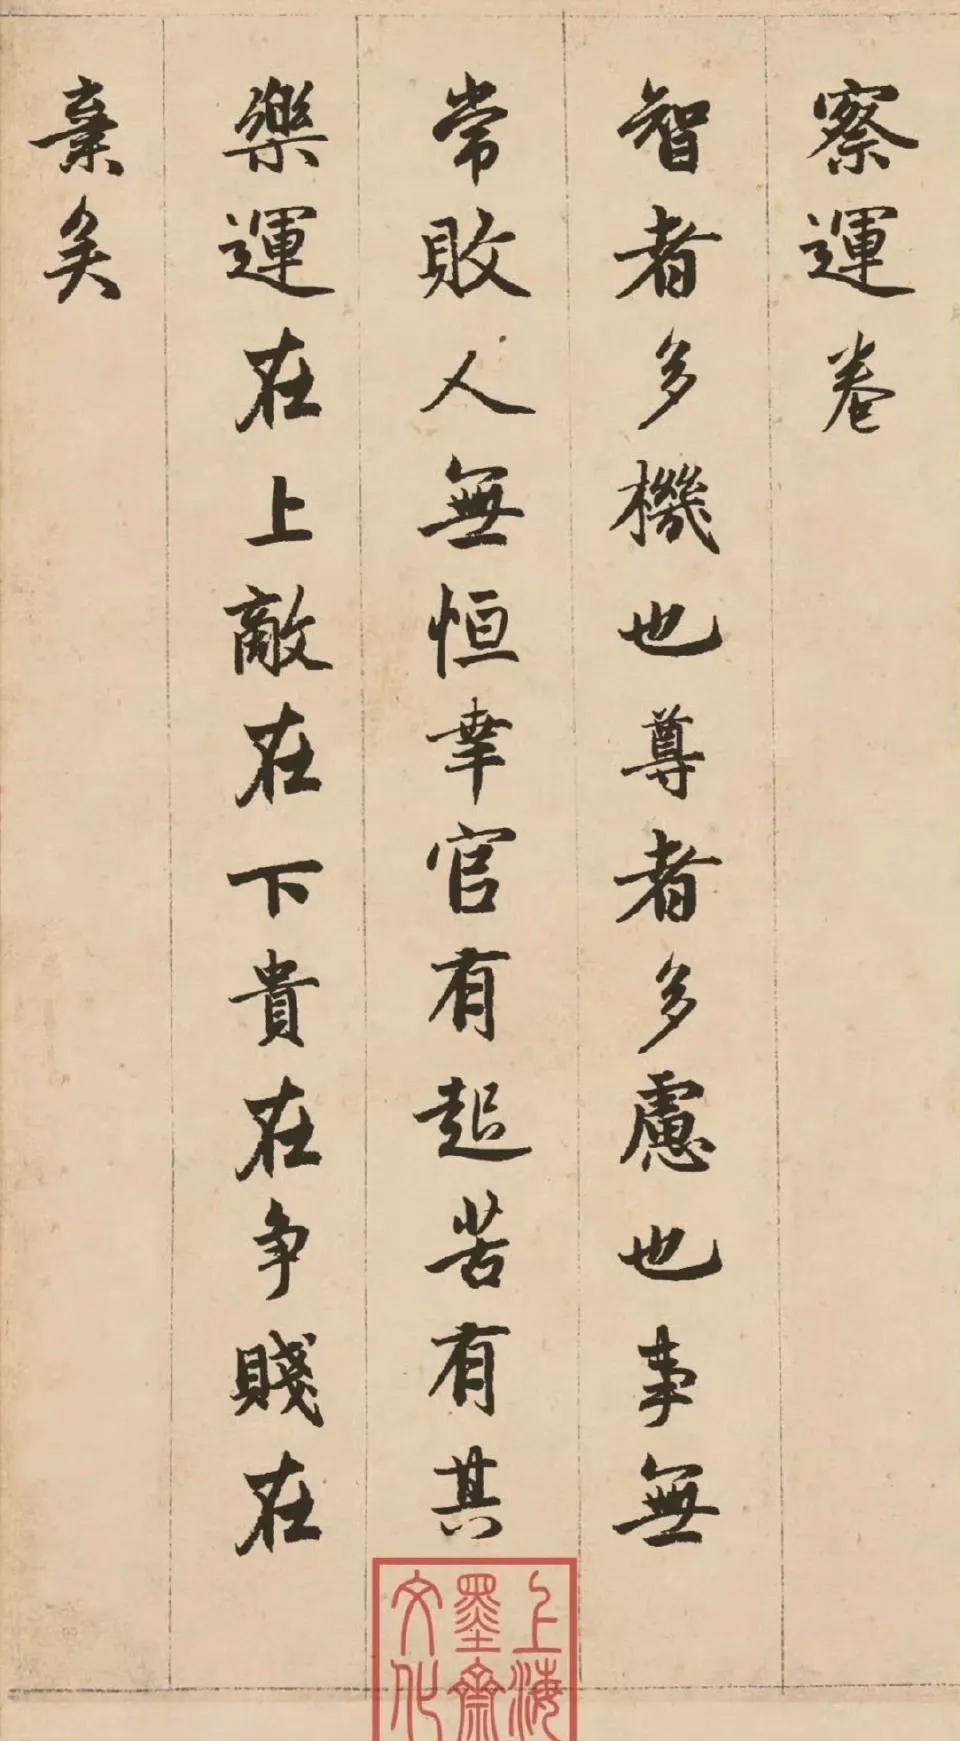 察運卷
智者多機也尊者多慮也事無
常敗人無恒幸官有起苦有其
樂運在上敵在下貴在争賤在
棄矣
上海
墨齋
文化